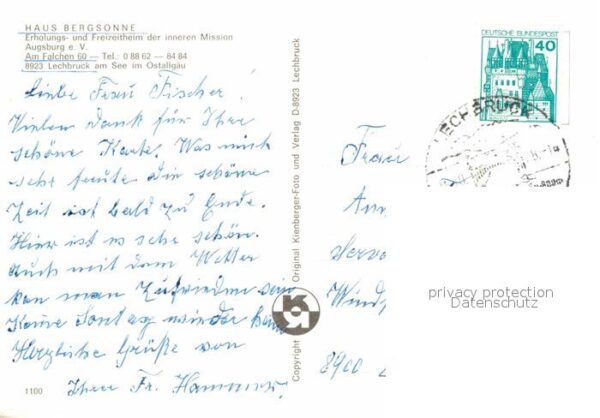 HAUS BERGSONNE
Erholungs- und Freizeitheim der inneren Mission
Augsburg e. V.
Am Falchen 60 — Tel.: 0 88 62 — 84 84
8923 Lechbruck am See im Ostallgäu
Liebe Frau Fischer!
Vielen Dank für Ihre
schöne Karte. Was mich
sehr freute die schöne
Zeit ist bald zu Ende.
Hier ist es sehr schön.
Auch mit dem Wetter
kan man Zufrieden sein
Komme Sontag wieder
Herzliche Grüße von
Ihrer Fr.
1100
Copyright Original Kienberger-Foto und Verlag D-8923 Lechbruck
DEUTSCHE BUNDESPOST
40
LECHBRUCK
Frau
Wind
8900
privacy protection
Datenschutz